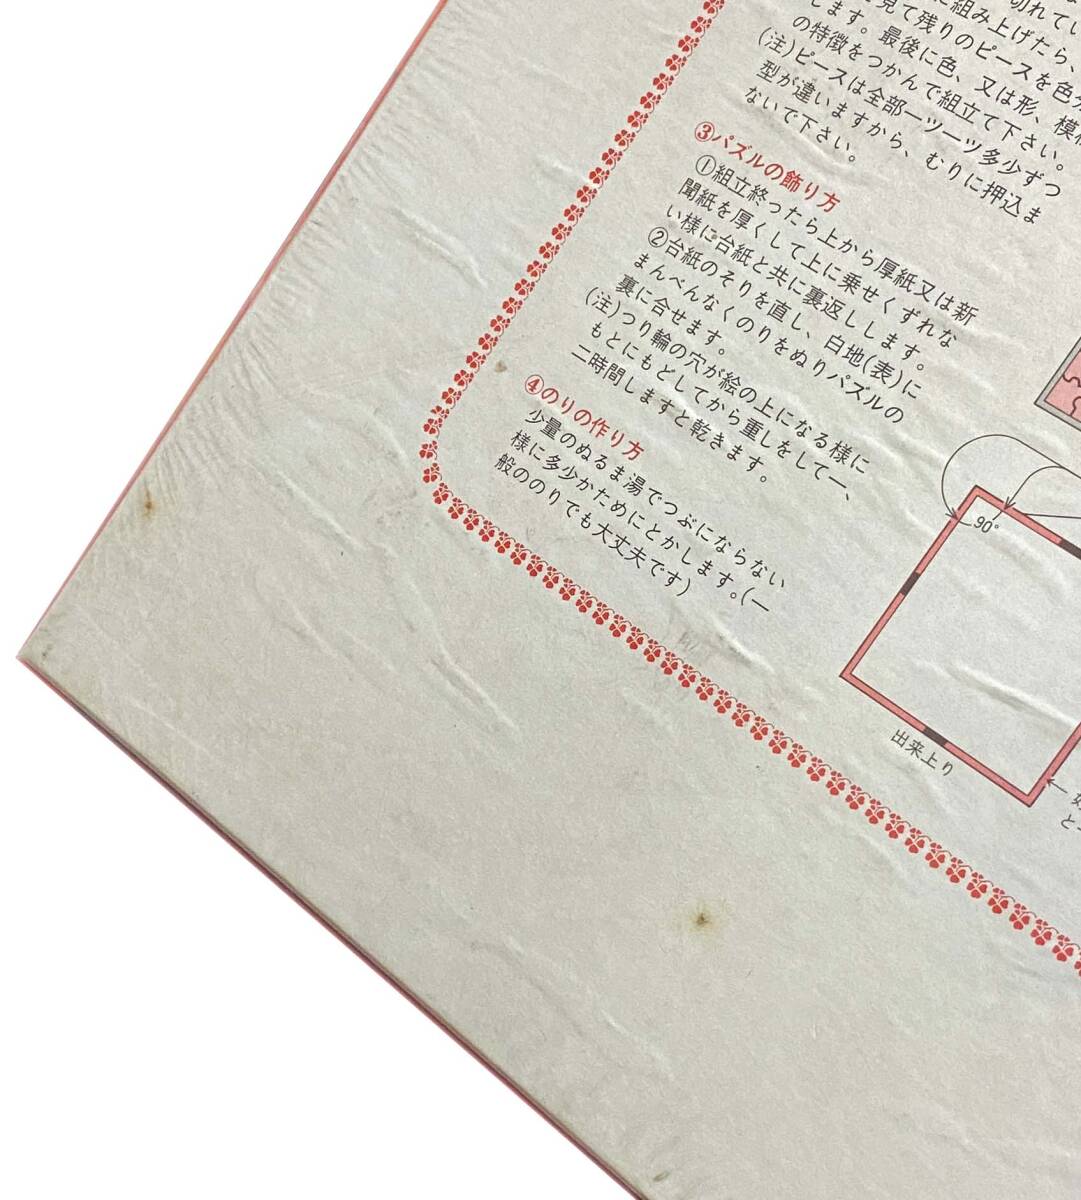 切れてい
に組み上げたら、
見て残りのピースを色分
します。最後に色、又は形、模様
の特徴をつかんで組立て下さい。
(注)ピースは全部一ツ一ツ多少ずつ
型が違いますから、むりに押込ま
ないで下さい。
③パズルの飾り方
①組立終ったら上から厚紙又は新
聞紙を厚くして上に乗せくずれな
い様に台紙と共に裏返しします。
②台紙のそりを直し、白地(表)に
まんべんなくのりをぬりパズルの
裏に合せます。
(注)つり輪の穴が絵の上になる様に
もとにもどしてから重しをして一、
二時間しますと乾きます。
④のりの作り方
少量のぬるま湯でつぶにならない
様に多少かためにとかします。(一
般ののりでも大丈夫です)
90°
出来上り
と